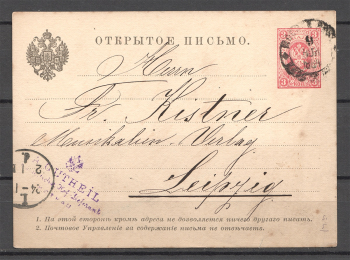 ОТКРЫТОЕ ПИСЬМО.
Herrn
Fr. Kistner
Musikalien-Verlag
Leipzig
1. На этой сторонѣ кромѣ адреса не дозволяется ничего другаго писать.
2. Почтовое Управленіе за содержаніе письма не отвѣчаетъ.